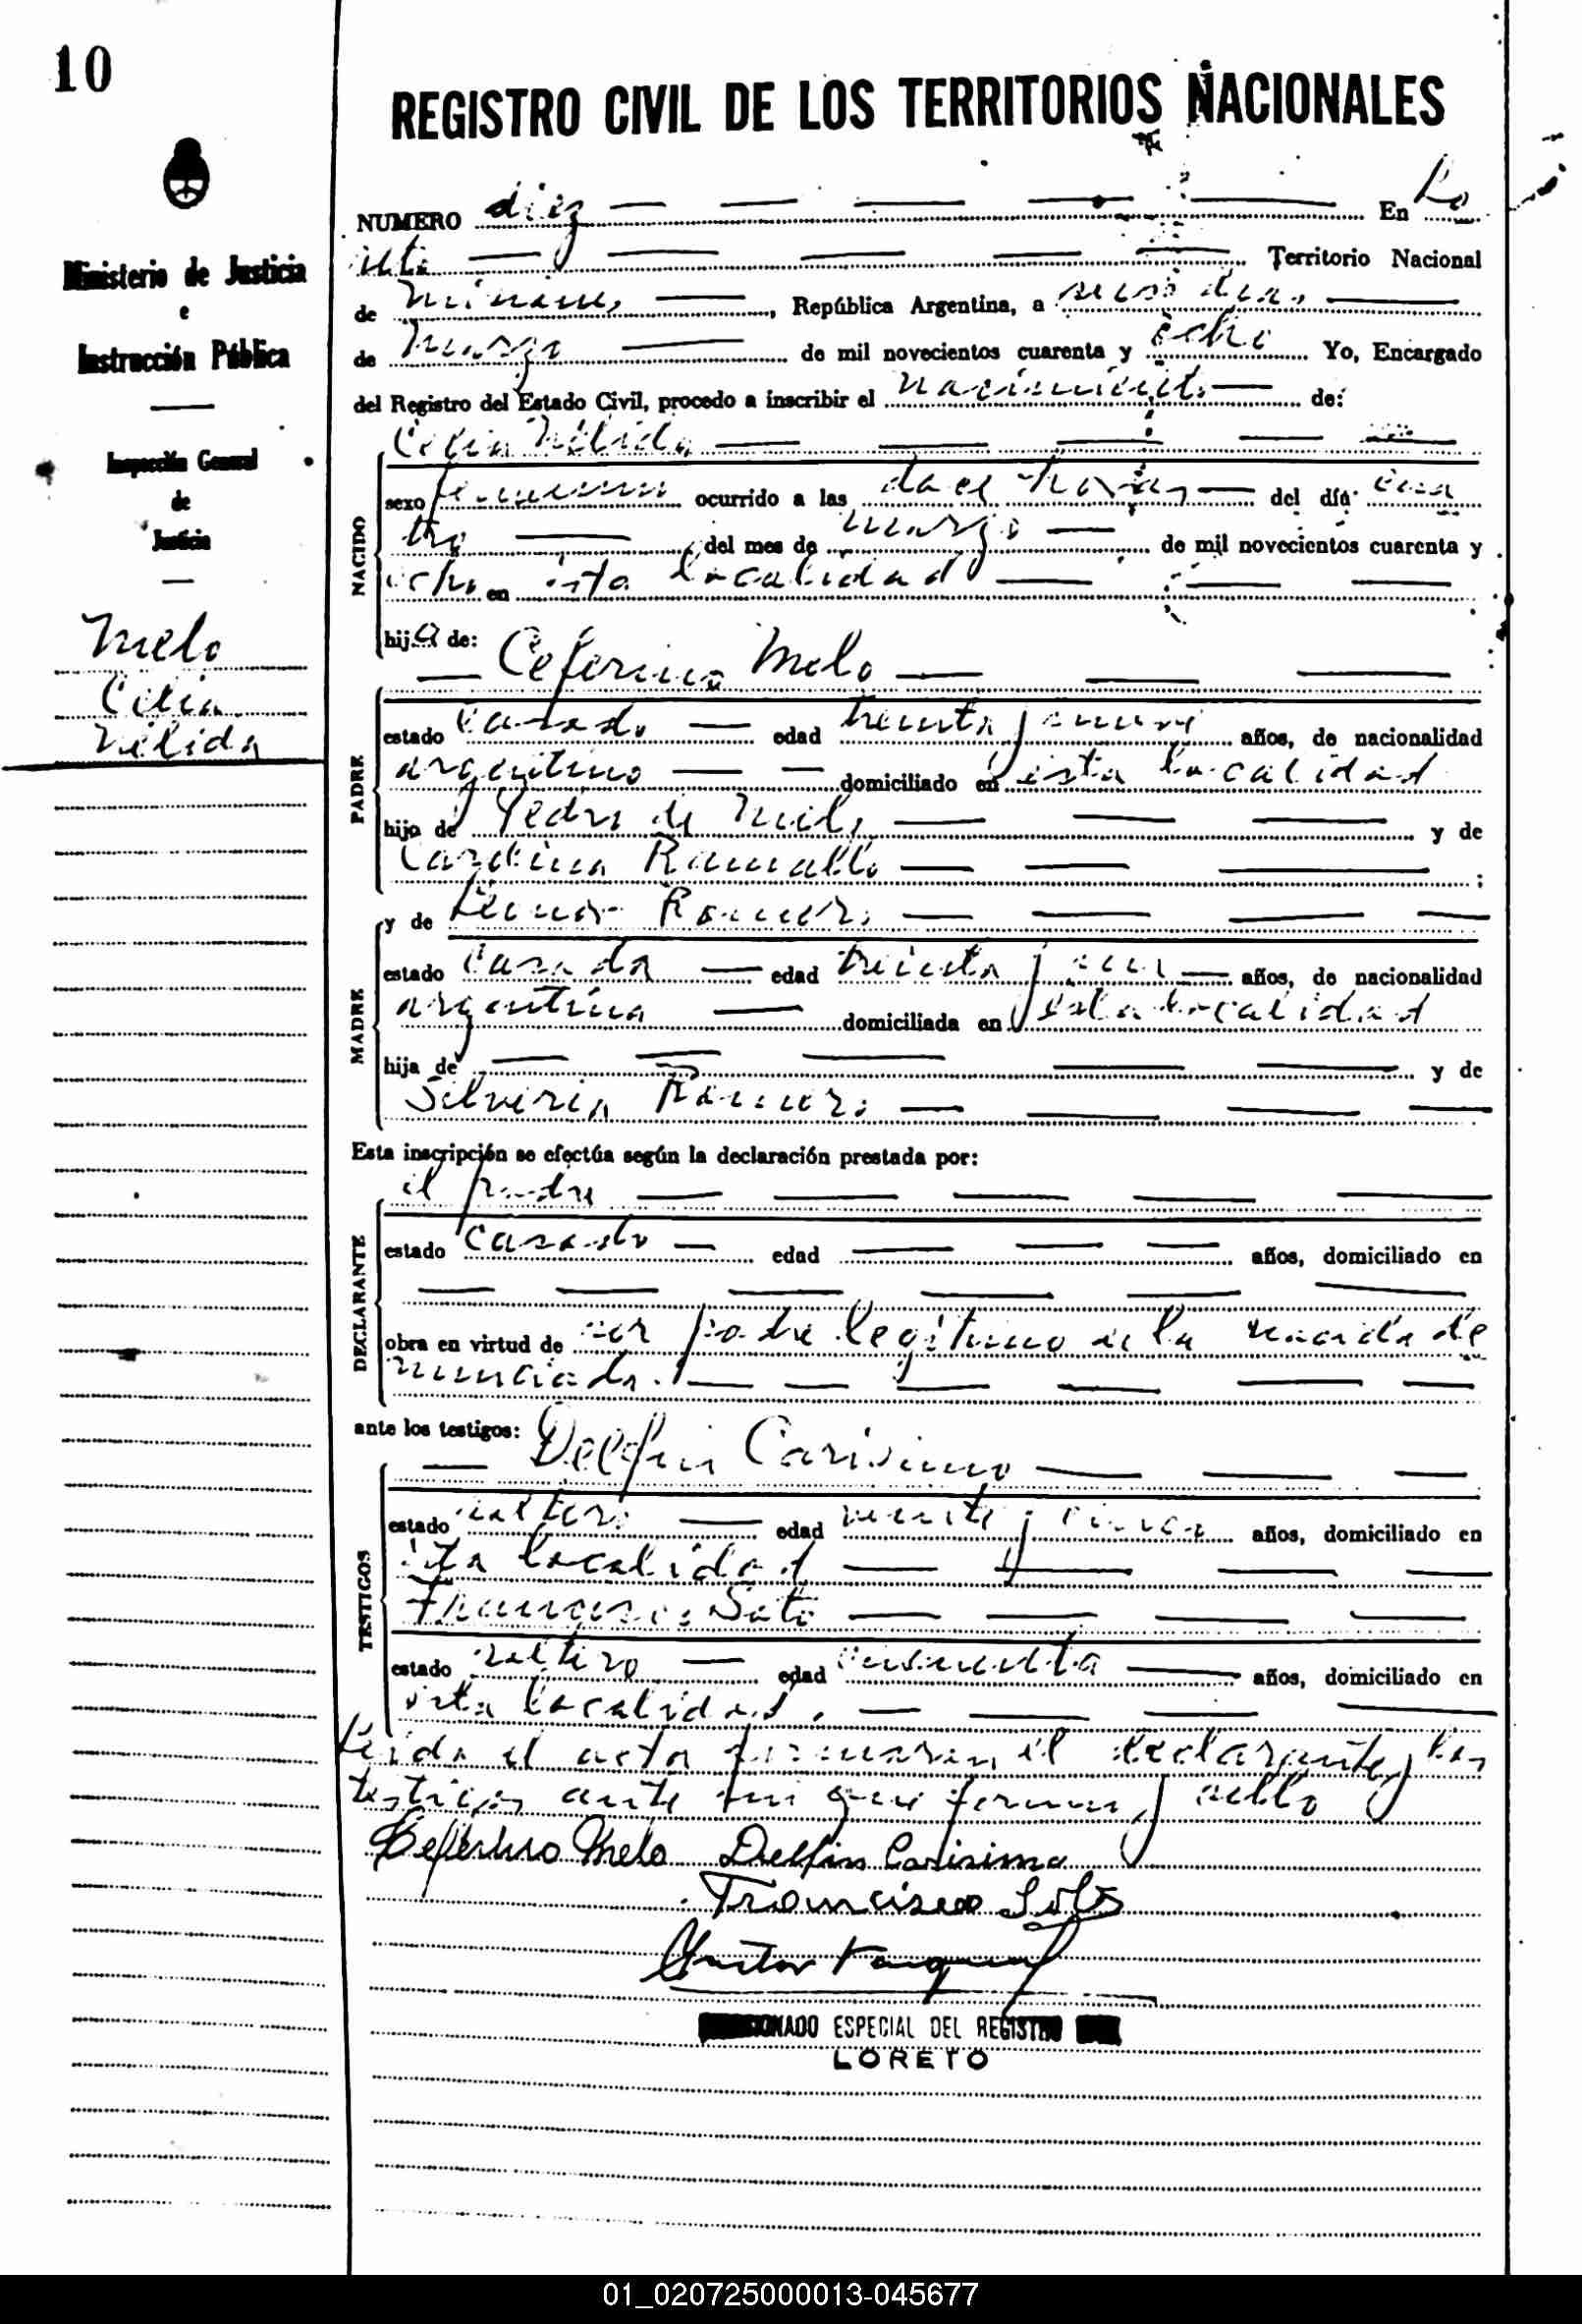 10
Ministerio de Justicia
e
Instrucción Pública
Inspección General
de
Justicia
Melo
Celia
Nélida
REGISTRO CIVIL DE LOS TERRITORIOS NACIONALES
NUMERO diez En Lo
reto Territorio Nacional
de Misiones, República Argentina, a seis días
de Marzo de mil novecientos cuarenta y ocho Yo, Encargado
del Registro del Estado Civil, procedo a inscribir el nacimiento de:
Celia Nélida
NACIDO
sexo femenino ocurrido a las doce horas del día cua
tro del mes de marzo de mil novecientos cuarenta y
ocho en ésta localidad
hija de:
Ceferino Melo
PADRE
estado casado edad treinta y años, de nacionalidad
argentino domiciliado en ésta localidad
hijo de Pedro de Melo y de
Carolina Ramallo ;
MADRE
y de Leonor Romero
estado casada edad treinta y años, de nacionalidad
argentina domiciliada en ésta localidad
hija de y de
Silveria Romero
Esta inscripción se efectúa según la declaración prestada por:
el padre
DECLARANTE
estado casado edad años, domiciliado en
obra en virtud de ser padre legítimo de la nacida de
nunciada.
ante los testigos:
Delfin Carisimo
TESTIGOS
estado soltero edad veinte y cinco años, domiciliado en
ésta localidad
Francisco Soto
estado soltero edad cincuenta años, domiciliado en
ésta localidad.
Leida el acta firmaron el declarante y los
testigos ante mi que firmo y sello
Ceferino Melo Delfin Carisimo
Francisco Soto
ESPECIAL DEL REGISTRO
LORETO
01_020725000013-045677